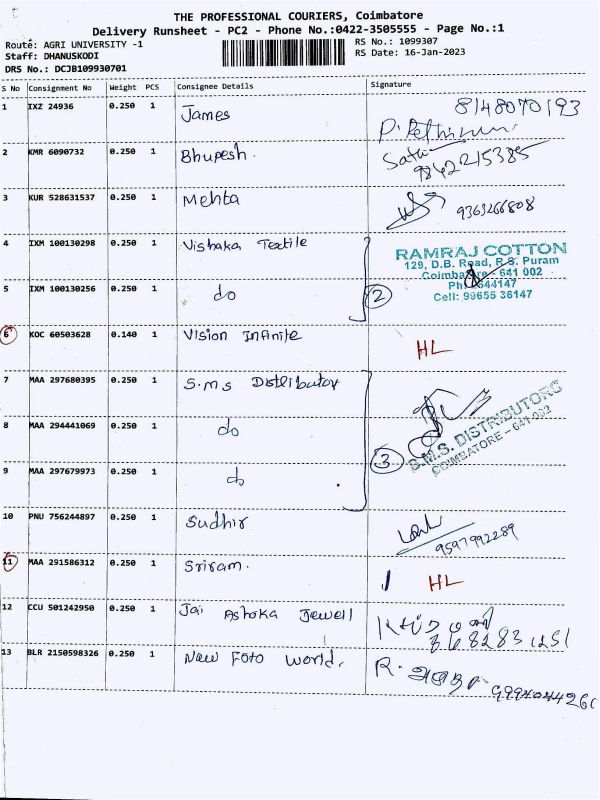 THE PROFESSIONAL COURIERS, Coimbatore
Delivery Runsheet - PC2 - Phone No.:0422-3505555 - Page No.:1
Route: AGRI UNIVERSITY -1
Staff: DHANUSKODI
DRS No.: DCJB109930701
RS No.: 1099307
RS Date: 16-Jan-2023
S No Consignment No Weight PCS Consignee Details Signature
1 IXZ 24936 0.250 1 James 8148070193
2 KMR 6090732 0.250 1 Bhupesh. 9842215385
3 KUR 528631537 0.250 1 Mehta 9363266808
4 IXM 100130298 0.250 1 Vishaka Textile
RAMRAJ COTTON
129, D.B. Road, R.S. Puram
Coimbatore - 641 002
Cell: 99655 36147
5 IXM 100130256 0.250 1 do 2
6 KOC 60503628 0.140 1 Vision Infinite HL
7 MAA 297680395 0.250 1 S.M.S Distributor
8 MAA 294441069 0.250 1 do
S.M.S. DISTRIBUTORS
COIMBATORE - 641 002
9 MAA 297679973 0.250 1 do 3
10 PNU 756244897 0.250 1 Sudhir 9597992289
11 MAA 291586312 0.250 1 Sriram. HL
12 CCU 501242950 0.250 1 Jai Ashoka Jewell
13 BLR 2150598326 0.250 1 New Foto World.